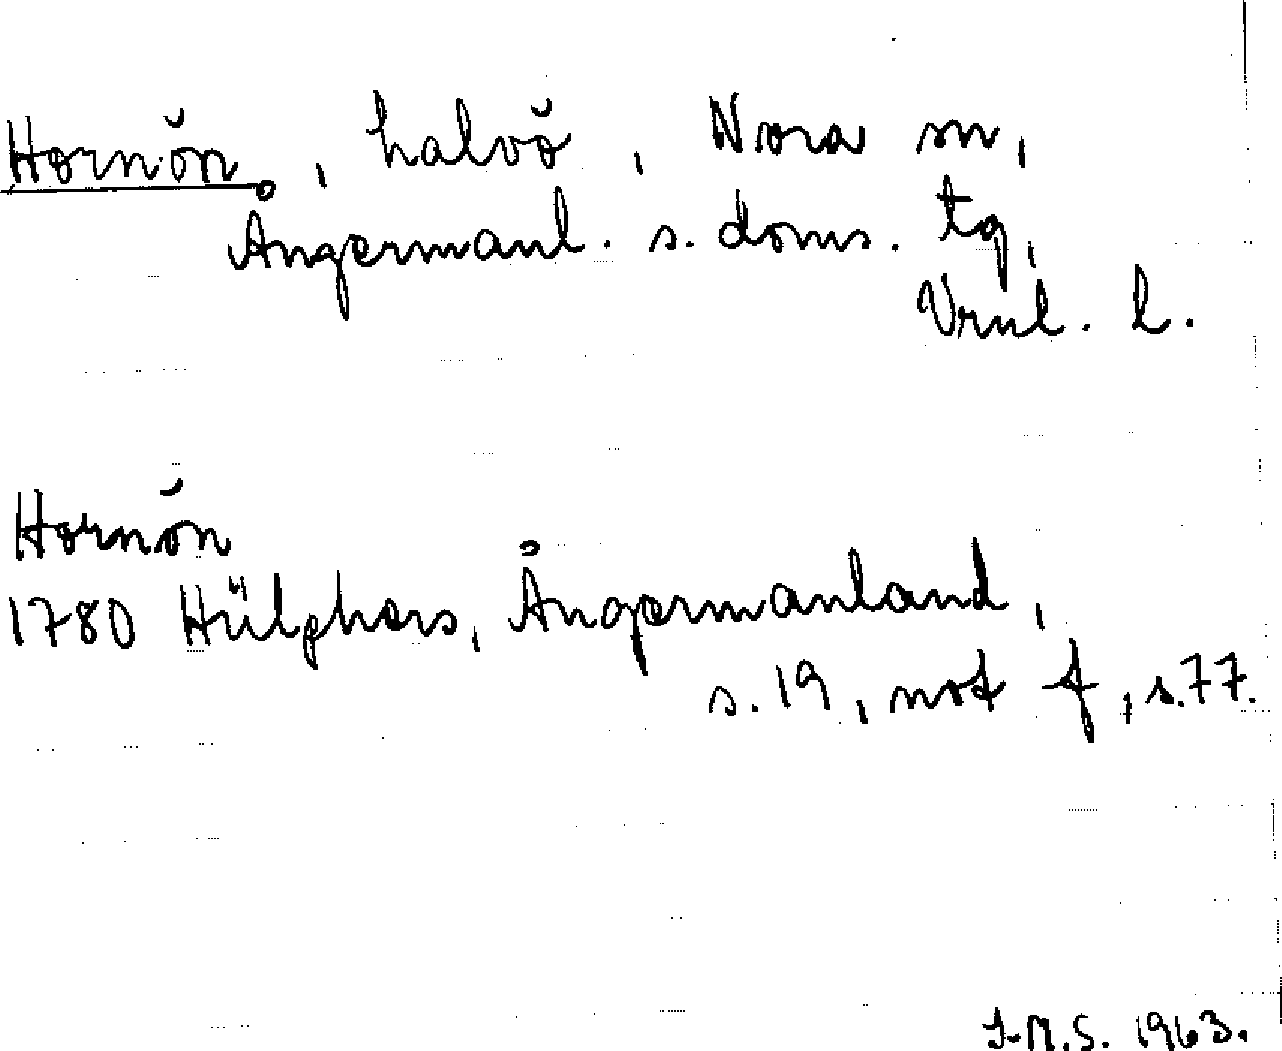 Hornön, halvö, Nora sn,
Ångermanl. s. doms. tg,
Vrnl. l.
Hornön
1780 Hülphers, Ångermanland,
s. 19, not f, s. 77.
J.M.S. 1963.